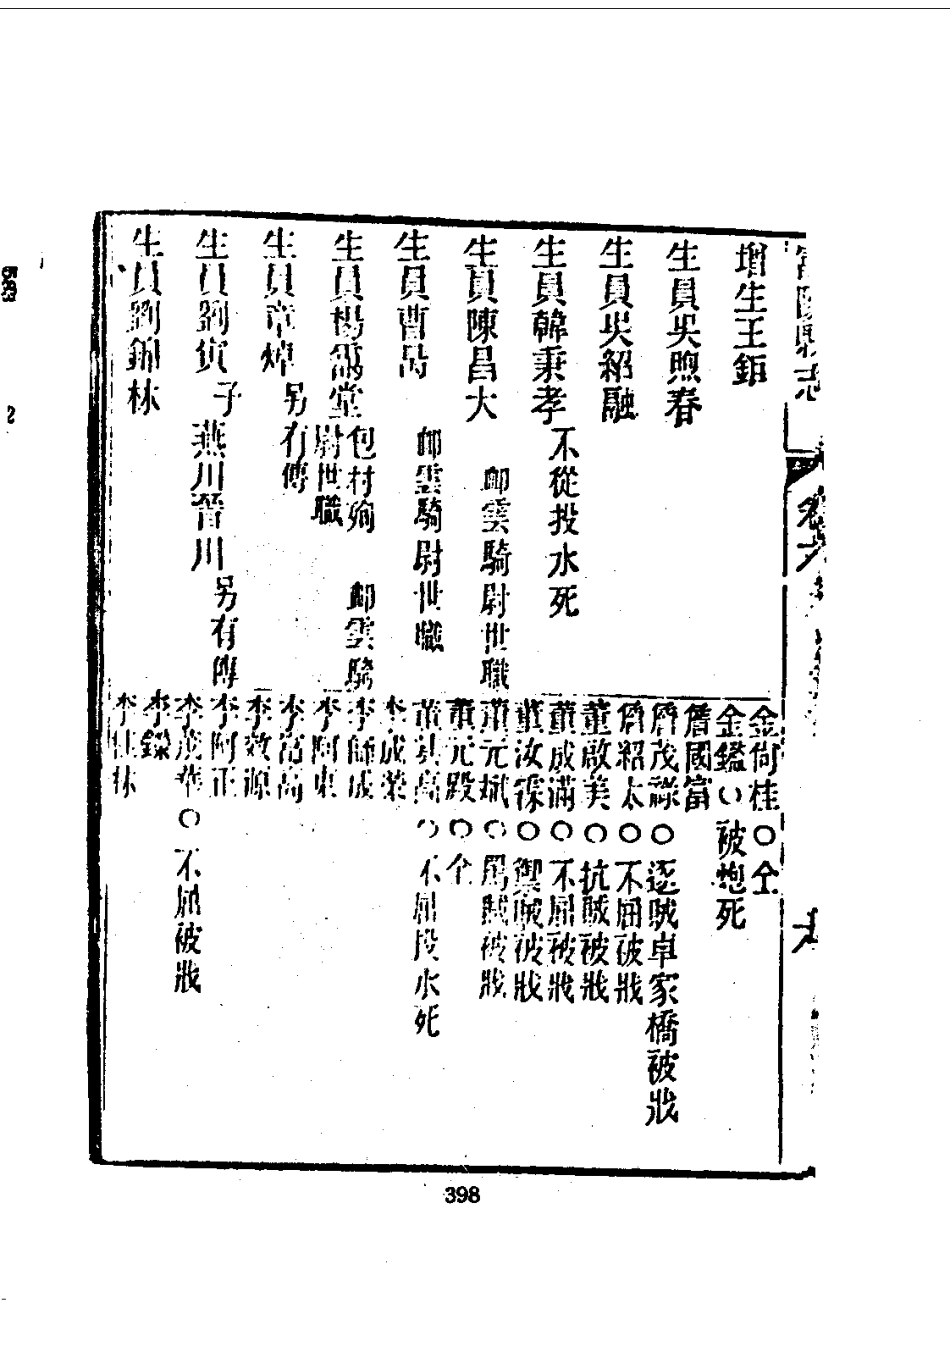 增生王鉅
生員吳煦春
生員吳紹融
生員韓秉孝 不從投水死
生員陳昌大 卹雲騎尉世職
生員曹 卹雲騎尉世職
生員楊 堂 包村殉 卹雲騎尉世職
生員章焯 另有傳
生員劉寅 子燕川晉川 另有傳
生員劉錦林
金尙桂○仝
金鑑○被炮死
詹國富
詹茂祿○逐賊卓家橋被戕
詹紹太○不屈被戕
董啟美○抗賊被戕
董成滿○不屈被戕
董汝 ○禦賊被戕
董元斌○罵賊被戕
董元殿○仝
董其高○不屈投水死
李成榮
李師成
李阿東
李高高
李效源
李阿正
李茂華○不屈被戕
李鑅
李桂林
398